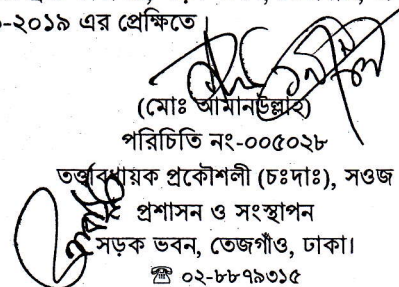 -২০১৯ এর প্রেক্ষিতে।
(মোঃ আমানউল্লাহ)
পরিচিতি নং-০০৫০২৮
তত্ত্বাবধায়ক প্রকৌশলী (চঃদাঃ), সওজ
প্রশাসন ও সংস্থাপন
সড়ক ভবন, তেজগাঁও, ঢাকা।
☎ ০২-৮৮৭৯৩১৫